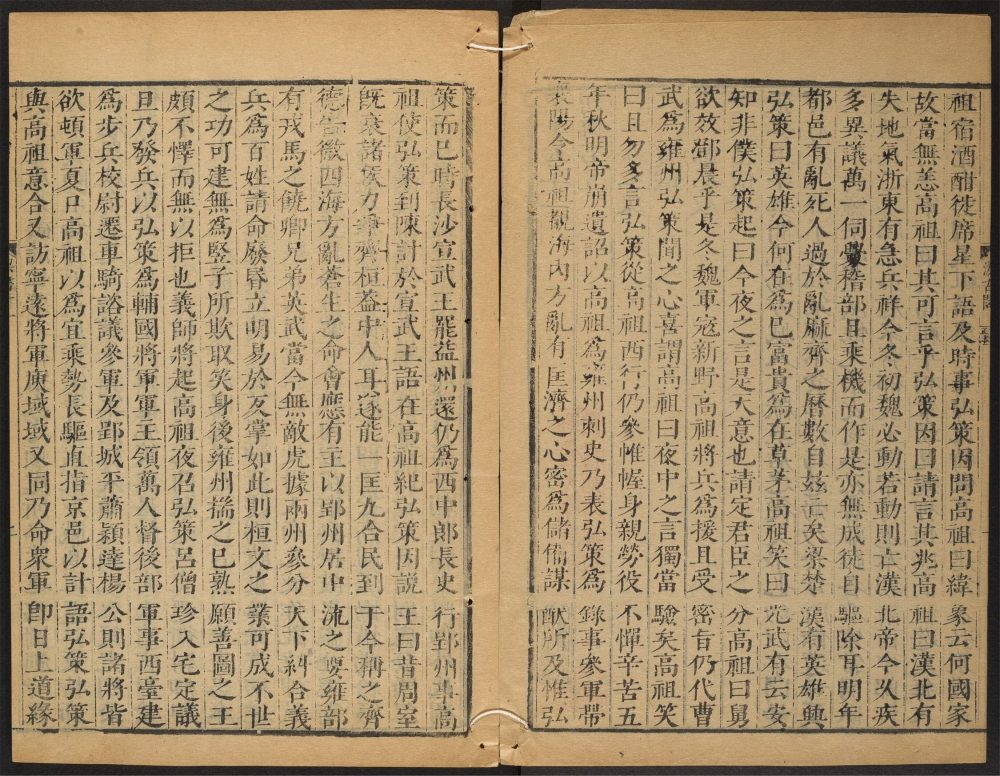 祖宿酒酣徙席星下語及時事弘策因問高祖曰緯象云何國家
故當無恙高祖曰其可言乎弘策因曰請言其兆高祖曰漢北有
失地氣浙東有急兵祥今冬初魏必動若動則亡漢北帝今久疾
多異議萬一伺釁稽部且乘機而作是亦無成徒自驅除耳明年
都邑有亂死人過於亂麻齊之曆數自茲亡矣梁楚漢有英雄興
弘策曰英雄今何在爲已富貴爲在草茅高祖笑曰光武有云安
知非僕弘策起曰今夜之言是天意也請定君臣之分高祖曰舅
欲效鄧晨乎是冬魏軍寇新野高祖將兵爲援且受密旨仍代曹
武爲雍州弘策聞之心喜謂高祖曰夜中之言獨當驗矣高祖笑
曰且勿多言弘策從高祖西行仍參帷幄身親勞役不憚辛苦五
年秋明帝崩遺詔以高祖爲雍州刺史乃表弘策爲錄事參軍帶
襄陽令高祖觀海內方亂有匡濟之心密爲儲備謀猷所及惟弘
策而已時長沙宣武王罷益州還仍爲西中郎長史行郢州事高
祖使弘策到陳計於宣武王語在高祖紀弘策因說王曰昔周室
旣衰諸侯力爭齊桓益中人耳遂能一匡九合民到于今稱之齊
德告微四海方亂蒼生之命會應有主以郢州居中流之要雍部
有戎馬之饒卿兄弟英武當今無敵虎據兩州參分天下糾合義
兵爲百姓請命廢昏立明易於反掌如此則桓文之業可成不世
之功可建無爲豎子所欺取笑身後雍州揣之已熟願善圖之王
頗不懌而無以拒也義師將起高祖夜召弘策呂僧珍入宅定議
旦乃發兵以弘策爲輔國將軍軍主領萬人督後部軍事西臺建
爲步兵校尉遷車騎諮議參軍及郢城平蕭穎達楊公則諸將皆
欲頓軍夏口高祖以爲宜乘勢長驅直指京邑以計語弘策弘策
與高祖意合又訪寧遠將軍庾域域又同乃命衆軍卽日上道緣